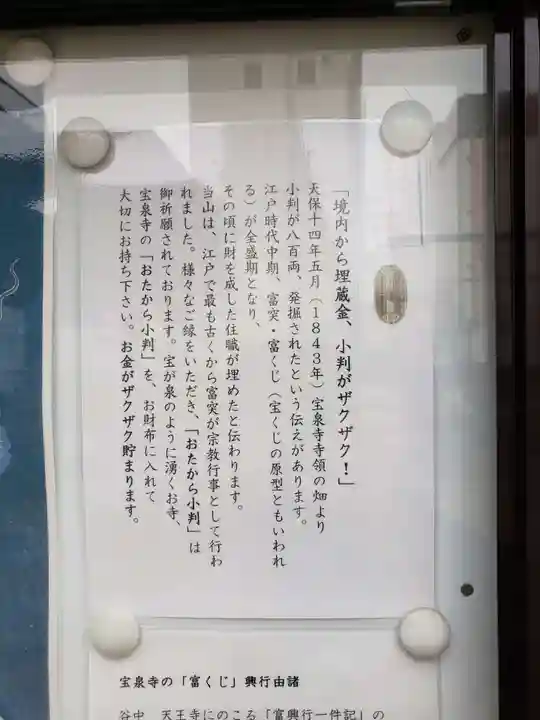 「境内から埋蔵金、小判がザクザク！」
天保十四年五月（１８４３年）宝泉寺寺領の畑より
小判が八百両、発掘されたという伝えがあります。
江戸時代中期、富突・富くじ（宝くじの原型ともいわれ
る）が全盛期となり、
その頃に財を成した住職が埋めたと伝わります。
当山は、江戸で最も古くから富突が宗教行事として行わ
れました。様々なご縁をいただき、「おたから小判」は
御祈願されております。宝が泉のように湧くお寺、
宝泉寺の「おたから小判」を、お財布に入れて
大切にお持ち下さい。お金がザクザク貯まります。
宝泉寺の「富くじ」興行由諸
谷中　天王寺にのこる「富興行一件記」の